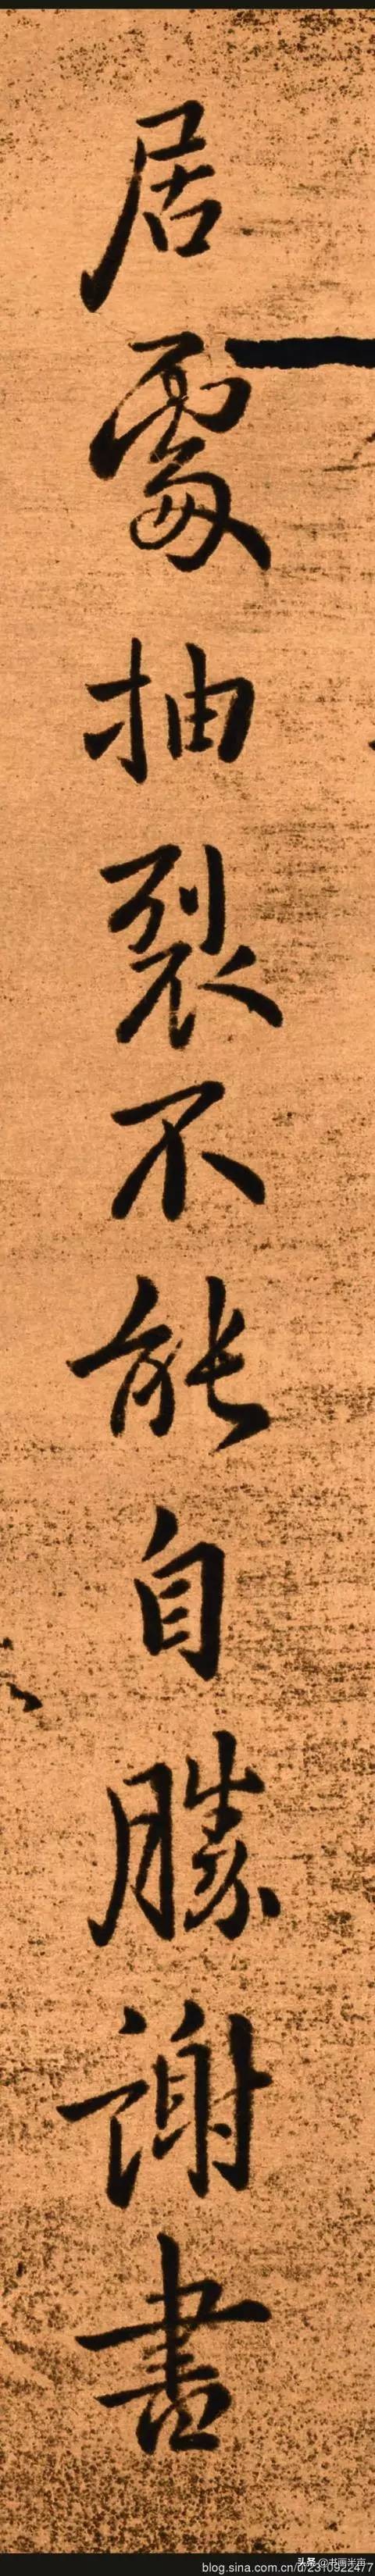 居處抽裂不能自勝謝書
头条
blog.sina.com.cn/u/2310922477